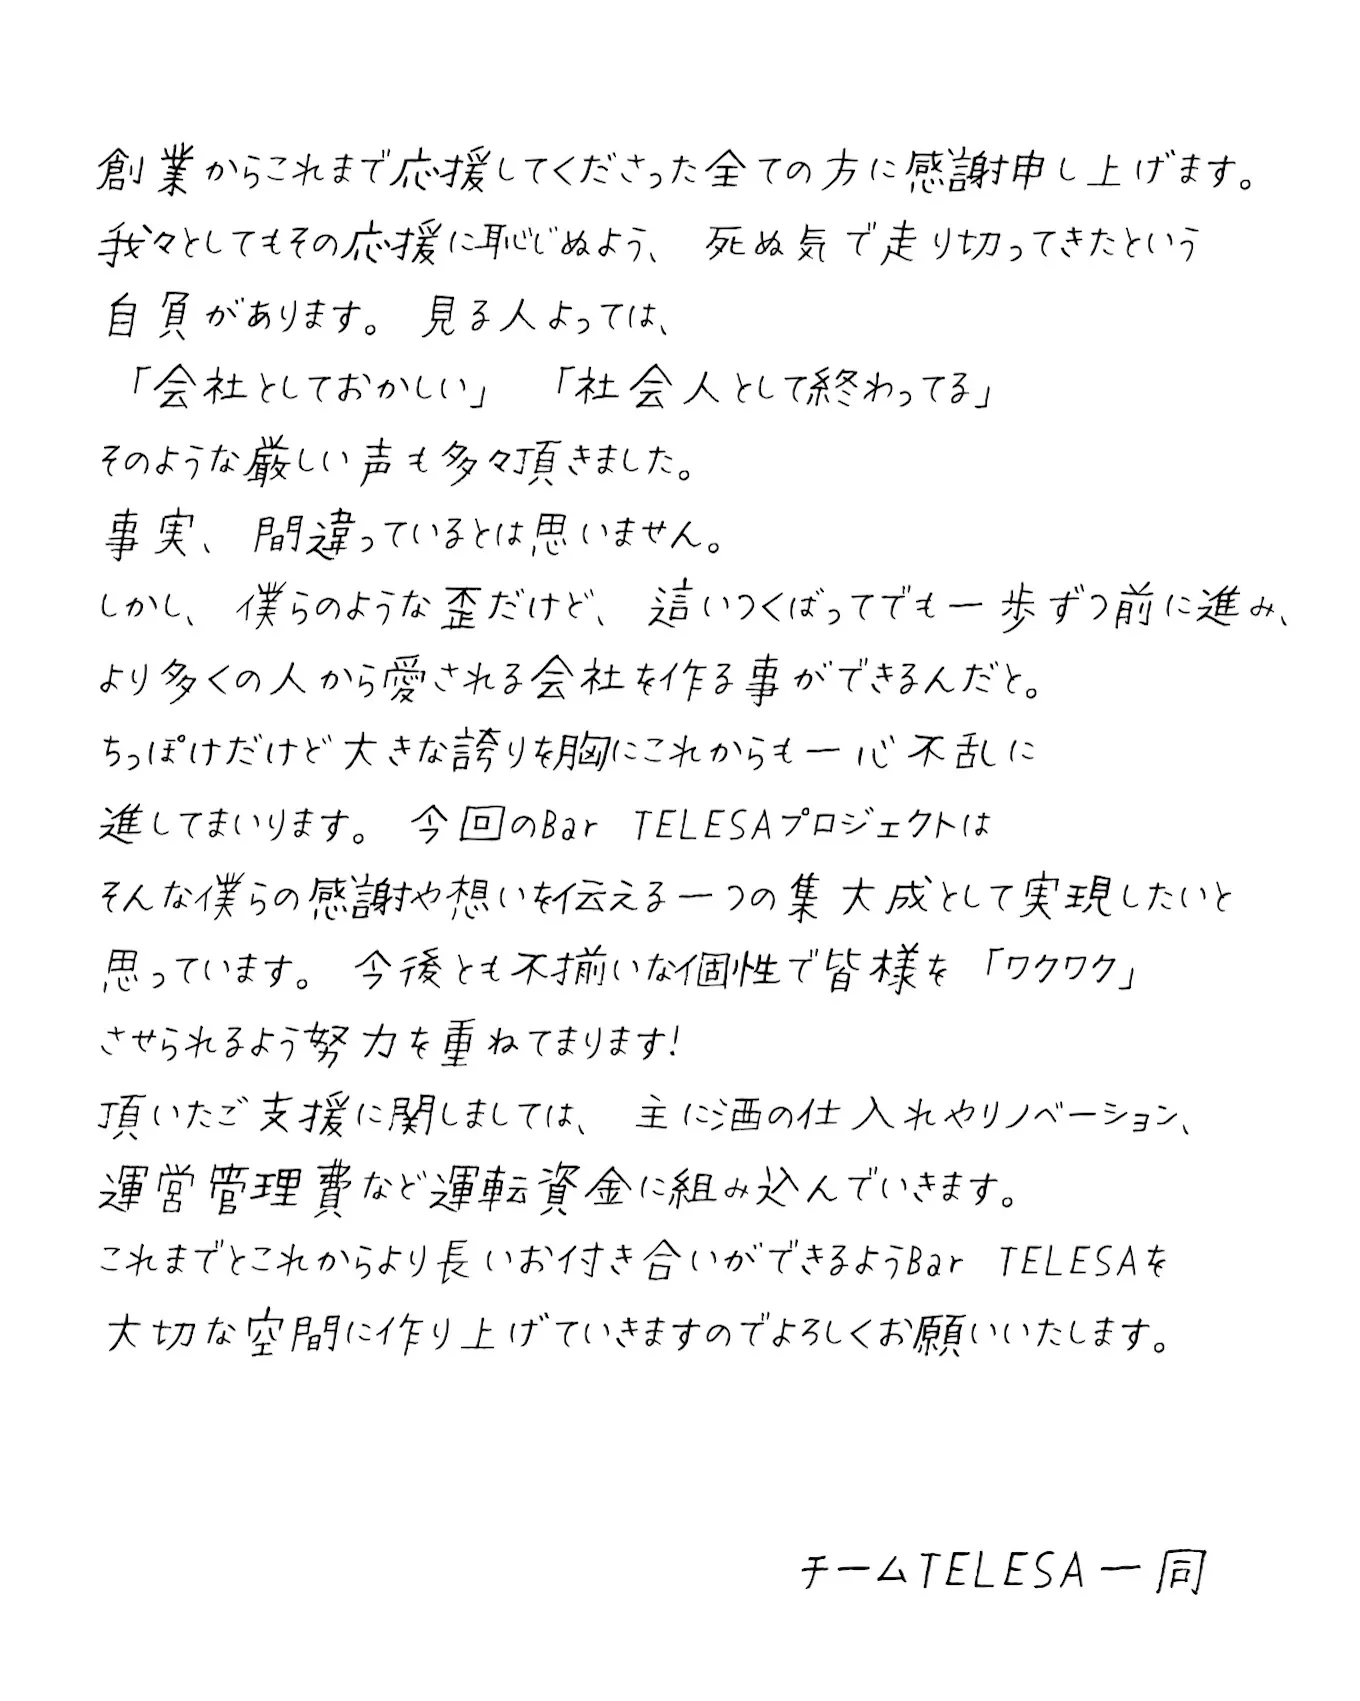 創業からこれまで応援してくださった全ての方に感謝申し上げます。
我々としてもその応援に恥じぬよう、 死ぬ気で走り切ってきたという
自負があります。 見る人よっては、
「会社としておかしい」 「社会人として終わってる」
そのような厳しい声も多々頂きました。
事実、 間違っているとは思いません。
しかし、 僕らのような歪だけど、 這いつくばってでも一歩ずつ前に進み、
より多くの人から愛される会社を作る事ができるんだと。
ちっぽけだけど大きな誇りを胸にこれからも一心不乱に
進してまいります。 今回のBar TELESAプロジェクトは
そんな僕らの感謝や想いを伝える一つの集大成として実現したいと
思っています。 今後とも不揃いな個性で皆様を「ワクワク」
させられるよう努力を重ねてまります!
頂いたご支援に関しましては、 主に酒の仕入れやリノベーション、
運営管理費など運転資金に組み込んでいきます。
これまでとこれからより長いお付き合いができるようBar TELESAを
大切な空間に作り上げていきますのでよろしくお願いいたします。
チームTELESA一同